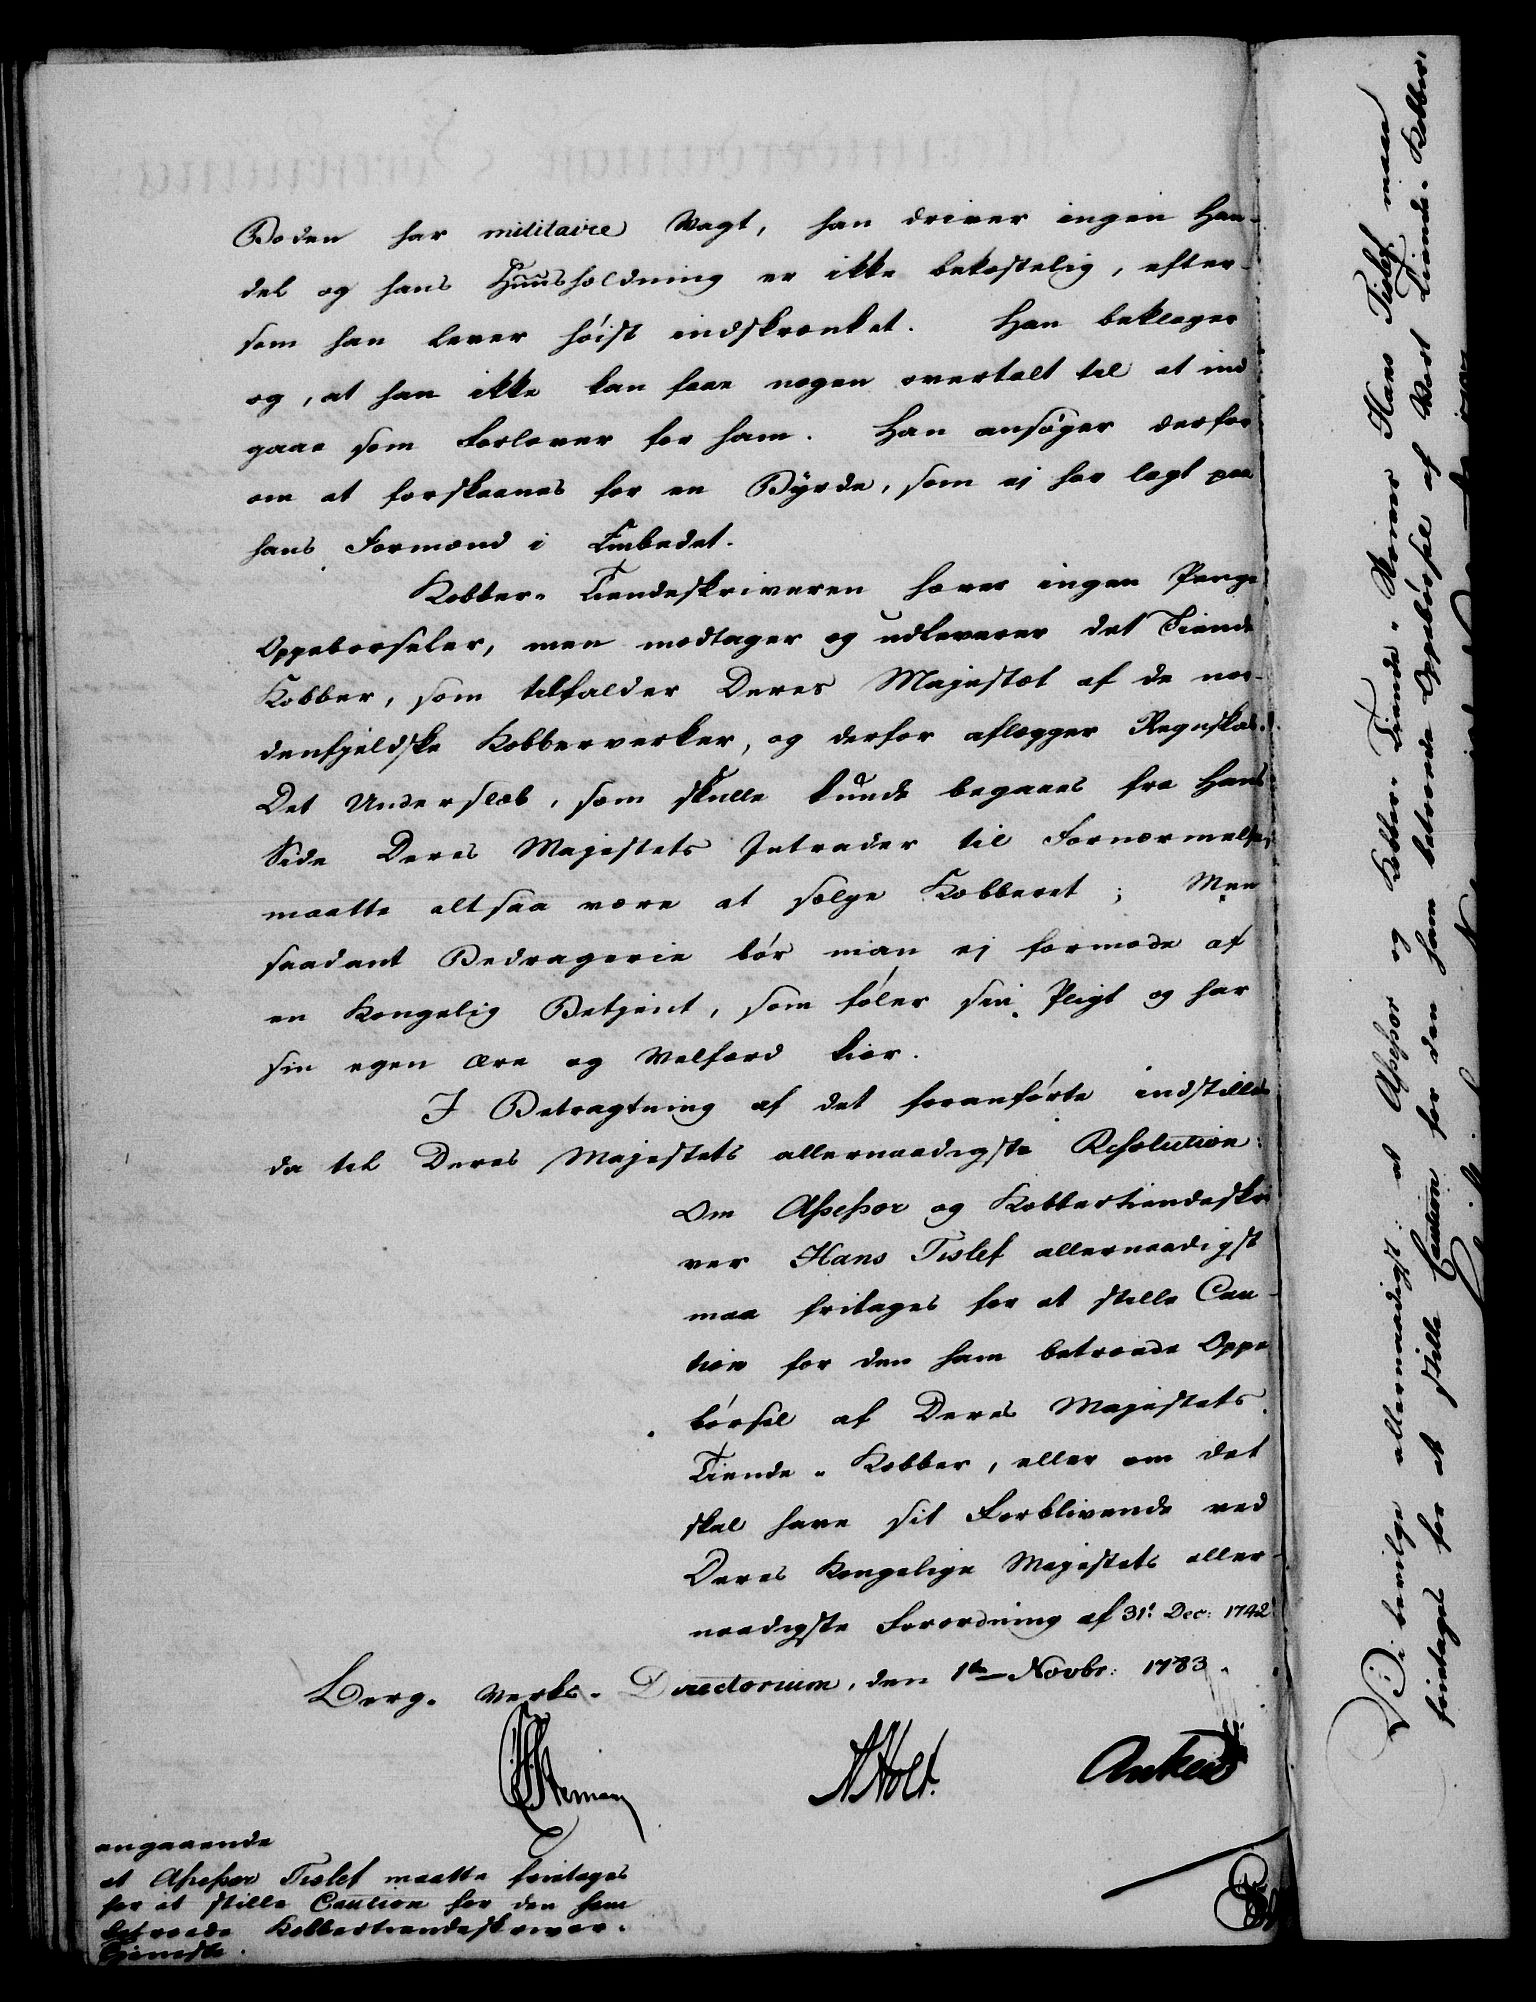 Boden har militaire Vagt, han driver ingen Han-
del og hans Huusholdning er ikke bekostelig, efter-
som han lever höist indskrænket. Han beklager
og, at han ikke kan faae nogen overtalt til at ind
gaae som Forlover for ham. Han ansöger derfor
om at forskaanes for en Byrde, som ej har lagt paa
hans Formænd i Embedet.
Kobber-Tiendeskriveren hæver ingen Penge
Oppeborseler, men modtager og udleverer det Tiende
Kobber, som tilfalder Deres Majestæt af de nor-
denfjeldske Kobberverker, og derfor aflægger Regnskab.
Det Underslæb, som skulle kunde begaaes fra Hans
Side Deres Majestets Intrader til Fornærmelse,
maatte altsaa være at sælge Kobberet; Men
saadant Bedragerie bör man ej formode af
en Kongelig Betjent, som föler sin Pligt og har
sin egen Ære og Velfærd kiær.
I Betragtning af det foranförte indstilles
da til Deres Majestets allernaadigste Resolution:
Om Assessor og Kobbertiendeskri
ver Hans Tislef allernaadigst
maa fritages for at stille Cau-
tion for den ham betroede Oppe
börsel af Deres Majestets
Tiende-Kobber, eller om det
skal have sit Forblivende ved
Deres Kongelige Majestets aller-
naadigste Forordning af 31. Dec: 1742
Berg-Verks-Directorium, den 1te Novbr: 1783.
AHolt. Anker
angaaende
at Assessor Tislef maatte fritages
for at stille Caution for den ham
betroede Kobbertiendeskriver-
Tjeneste.
Vi bevilge allernaadigst: at Assessor og Kobber-Tiende-Skriver Hans Tislef maae
fritages for at stille Caution for den ham betroede Oppebörsel af Vort Tiende-Kobber,